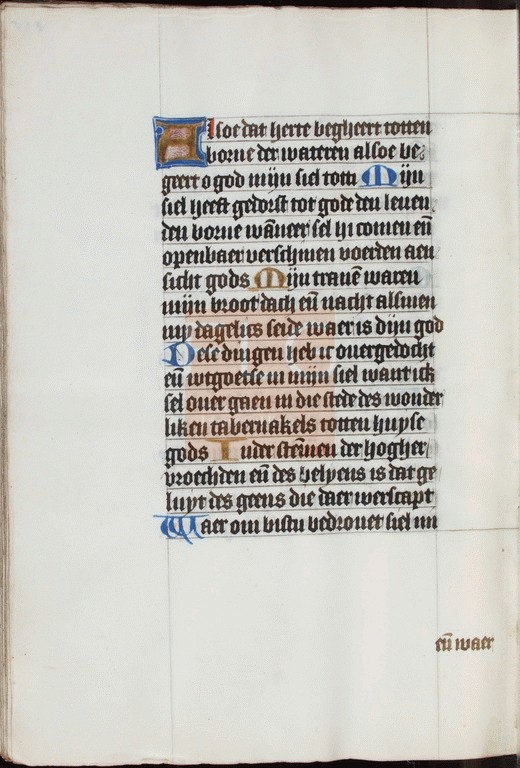 Alsoe dat herte begheert totten
borne der wateren alsoe be⸗
geert o god mijn siel tottu Mijn
siel heeft gedorst tot gode den leuen
den borne wāneer sel hi comen eñ
openbaer verschinen voerden aen
sicht gods Mijn tranē waren
mijn broot dach eñ nacht alsmen
mij dagelics seide waer is dijn god
Dese dingen heb ic ouergedocht
eñ wtgoetse in mijn siel want ick
sel ouer gaen in die stede des wonder
liken tabernakels totten huyse
gods Inder stēmen der hogher
vroechden eñ des belyens is dat ge
luyt des geens die daer werscapt
Waer om bistu bedrouet siel mi
eñ waer